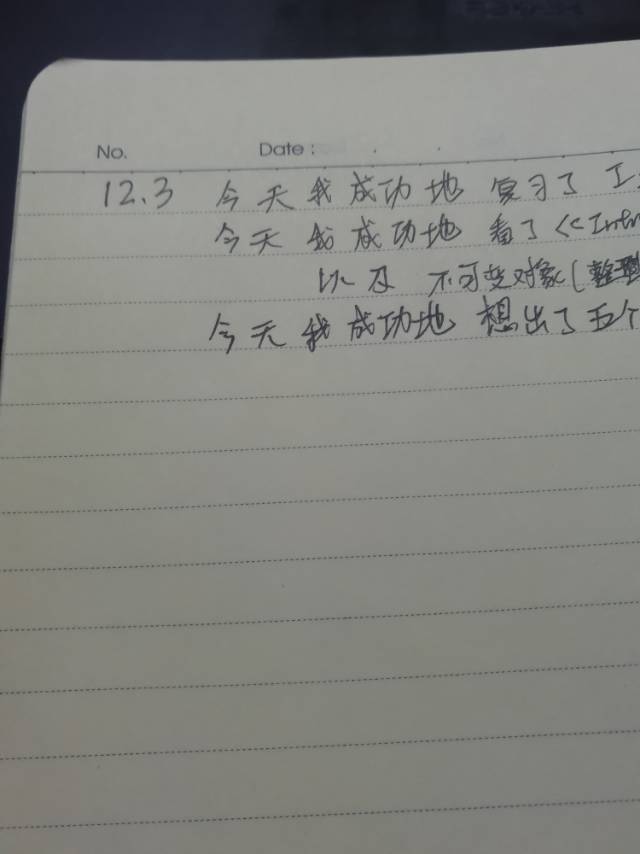 No. Date :
12.3 今天我成功地 复习了 I
今天我成功地 看了 <<Intr
以及 不可变对象(整型
今天我成功地 想出了五个